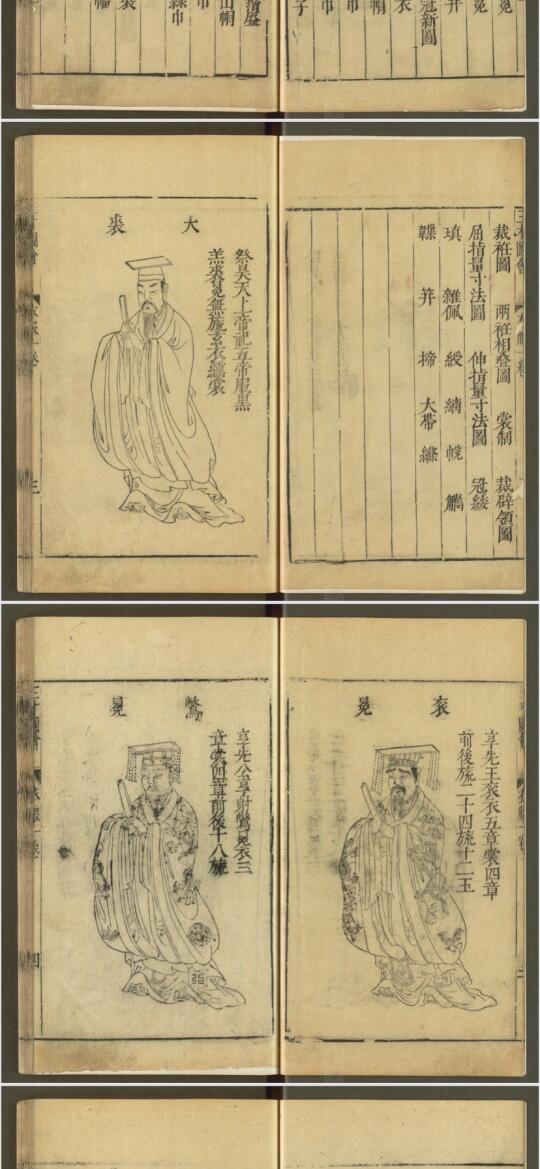 冕
冕
弁
冠新圖
衣
帽
巾
巾
子
山帽
巾
裁袵圖 兩袵相疊圖 裳制 裁辟領圖
屈指量寸法圖 伸指量寸法圖 冠緌
瑱 雜佩 綬 帨 觿
韘 笄 揥 大帶
大裘
祭昊天上帝祀五帝服黑
羔裘冕無旒玄衣纁裳
衣服一卷
三
袞冕
享先王袞衣五章裳四章
前後旒二十四旒十二玉
鷩冕
享先公享射鷩冕衣三
章裳四章前後十八旒
三才圖會
衣服一卷
四